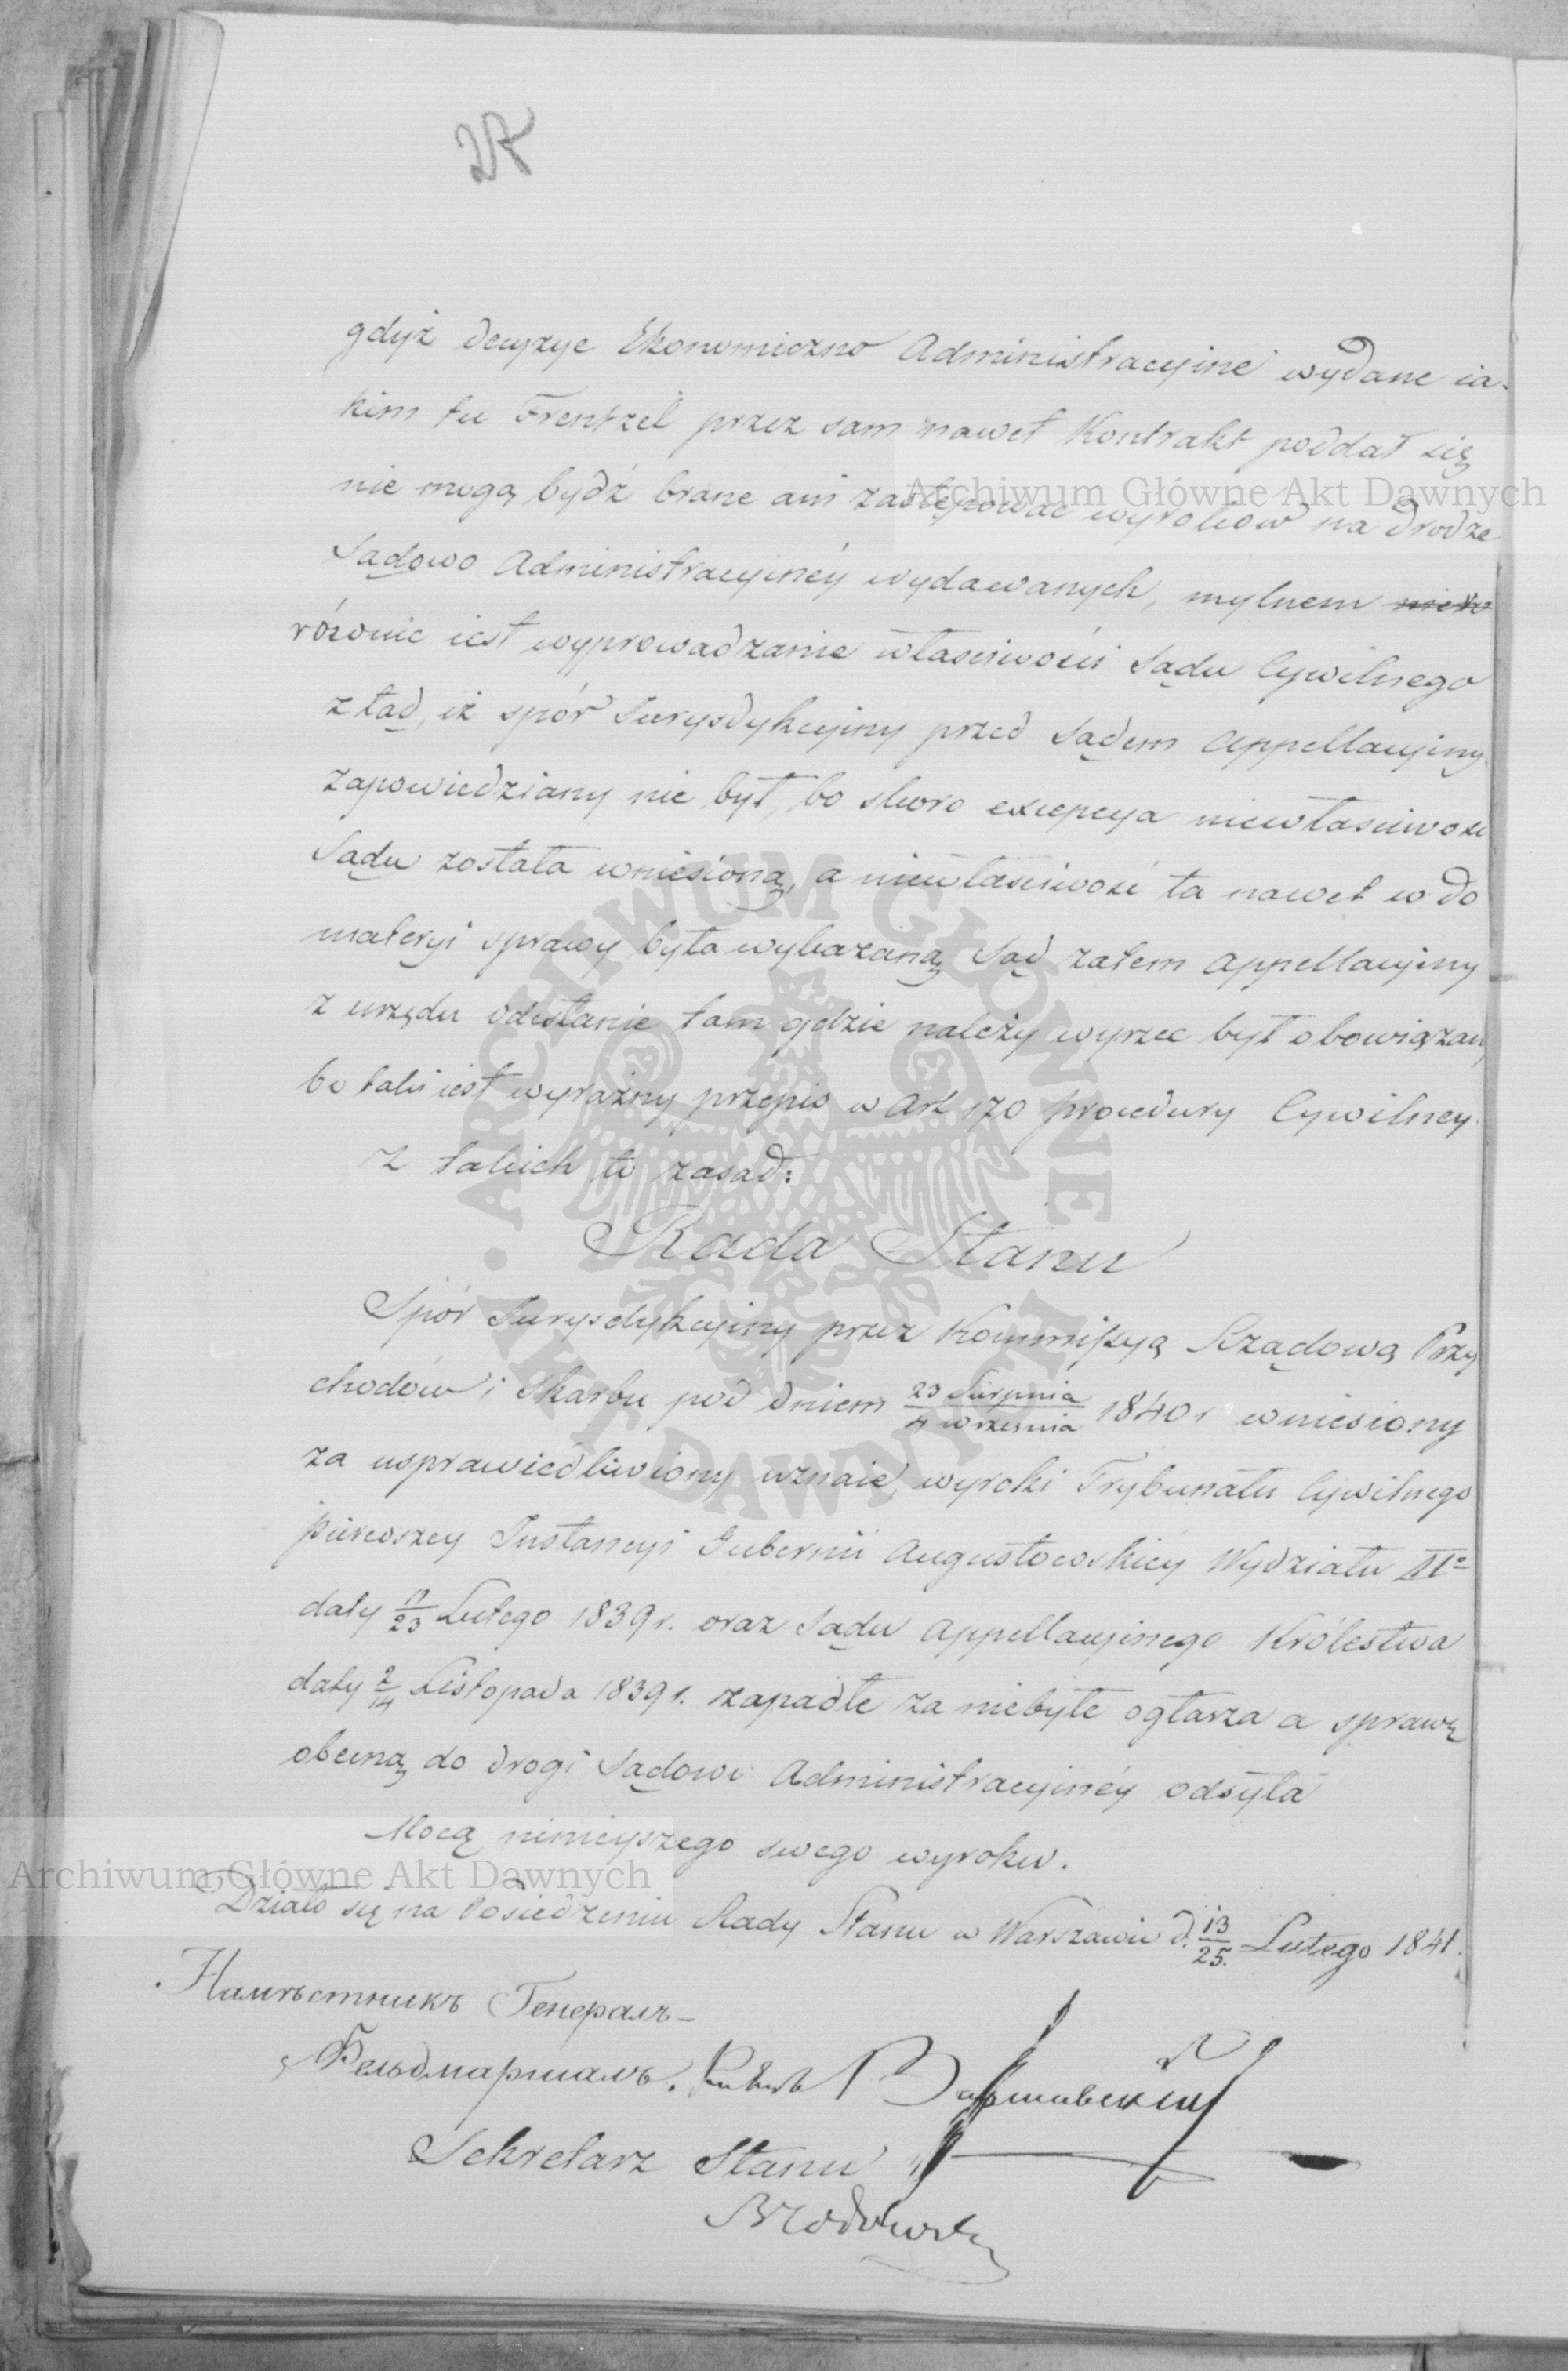 27
gdyż decyzye Ekonomiczno Administracyine wydane ia-
kim tu Frentzel przez sam nawet Kontrakt poddał się
nie mogą bydź brane ani zastępować wyroków na drodze
Sądowo Administracyinéy wydawanych, mylnem
równie iest wyprowadzanie własciwości Sądu Cywilnego
ztąd, iż spór Jurysdykcyiny przed Sądem Appellacyinym
zapowiedziany nie był, bo skoro excepcya niewłasciwości
Sądu została wniesioną, a niewłasciwość ta nawet w do
materyi sprawy była wykazaną Sąd zatem Appellacyiny
z urzędu odesłanie tam gdzie należy wyrzec był obowiązany
bo taki iest wyraźny przepis w Art 170 procedury Cywilney.
Z takich to zasad:
Rada Stanu
Spór Jurysdykcyiny przez Kommissyą Rządową Przy
chodów i Skarbu pod dniem 23 Sierpnia / 4 Września 1840 r wniesiony
za usprawiedliwiony uznaie, wyroki Trybunału Cywilnego
pierwszey Instancyi Gubernii Augustowskiéy Wydziału II°
daty 11/23 Lutego 1839 r. oraz Sądu Appellacyinego Królestwa
daty 2/14 Listopada 1839 r. zapadłe za niebyłe ogłasza a sprawę
obecną do drogi Sądowo Administracyinéy odsyła
Mocą ninieyszego swego wyroku.
Działo się na Posiedzeniu Rady Stanu w Warszawie d. 13/25. Lutego 1841.
Намѣстникъ Генералъ-
Фельдмаршалъ. Князь Варшавскій
Sekretarz Stanu
Brzozowski
Archiwum Główne Akt Dawnych
ARCHIWUM GŁÓWNE AKT DAWNYCH
Archiwum Główne Akt Dawnych